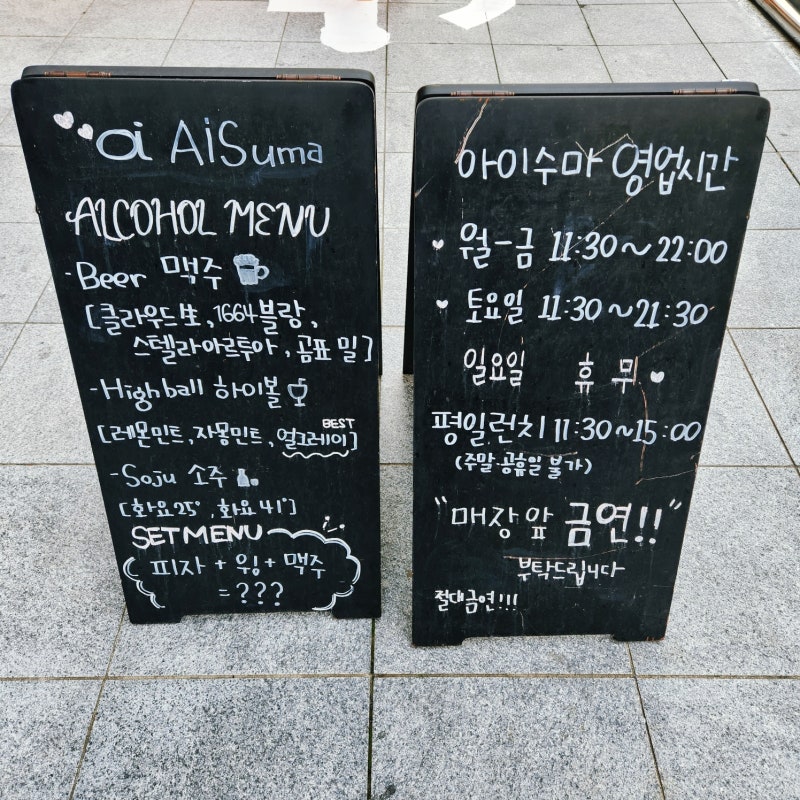 ai AiSuma
ALCOHOL MENU
-Beer 맥주
[클라우드生, 1664블랑,
스텔라아르투아, 곰표 밀]
-Highball 하이볼
BEST
[레몬민트, 자몽민트, 얼그레이]
-Soju 소주
[화요25°, 화요41°]
SET MENU
피자 + 윙 + 맥주
= ???
아이수마 영업시간
월-금 11:30~22:00
토요일 11:30~21:30
일요일 휴무
평일런치 11:30~15:00
(주말·공휴일 불가)
"매장 앞 금연!!"
부탁드립니다
절대금연!!!